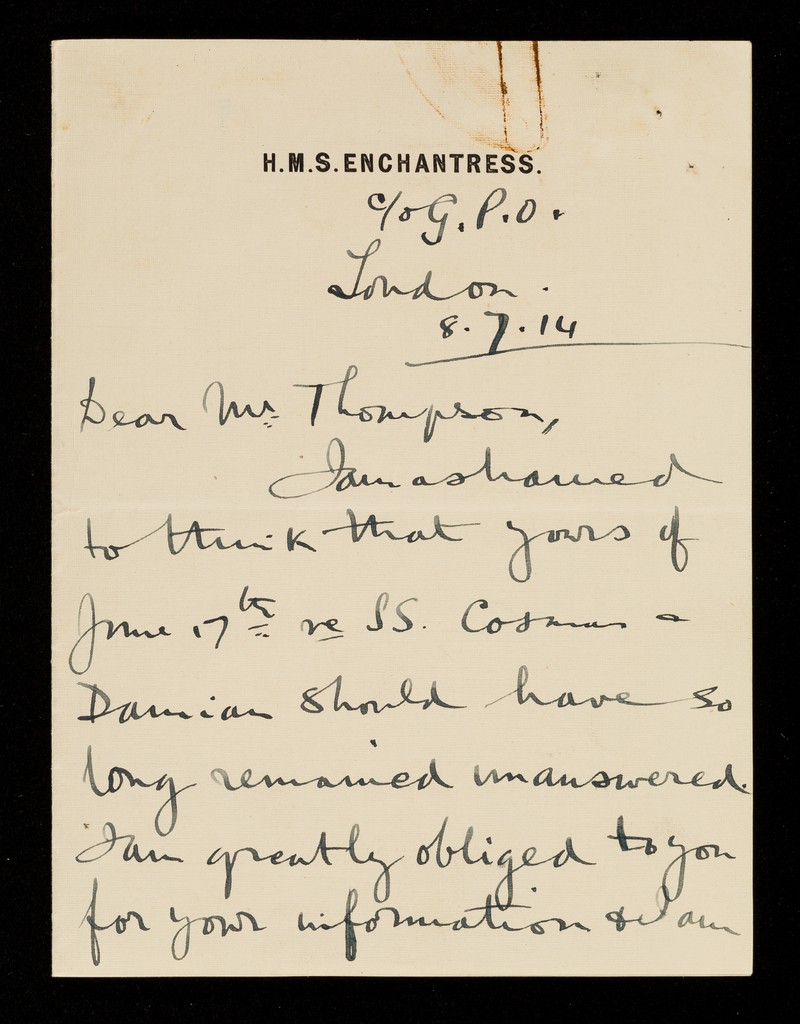 H.M.S. ENCHANTRESS.
c/o G.P.O.
London.
8.7.14
Dear Mr. Thompson,
I am ashamed
to think that yours of
June 17th re SS. Cosmas &
Damian should have so
long remained unanswered.
I am greatly obliged to you
for your information & I am